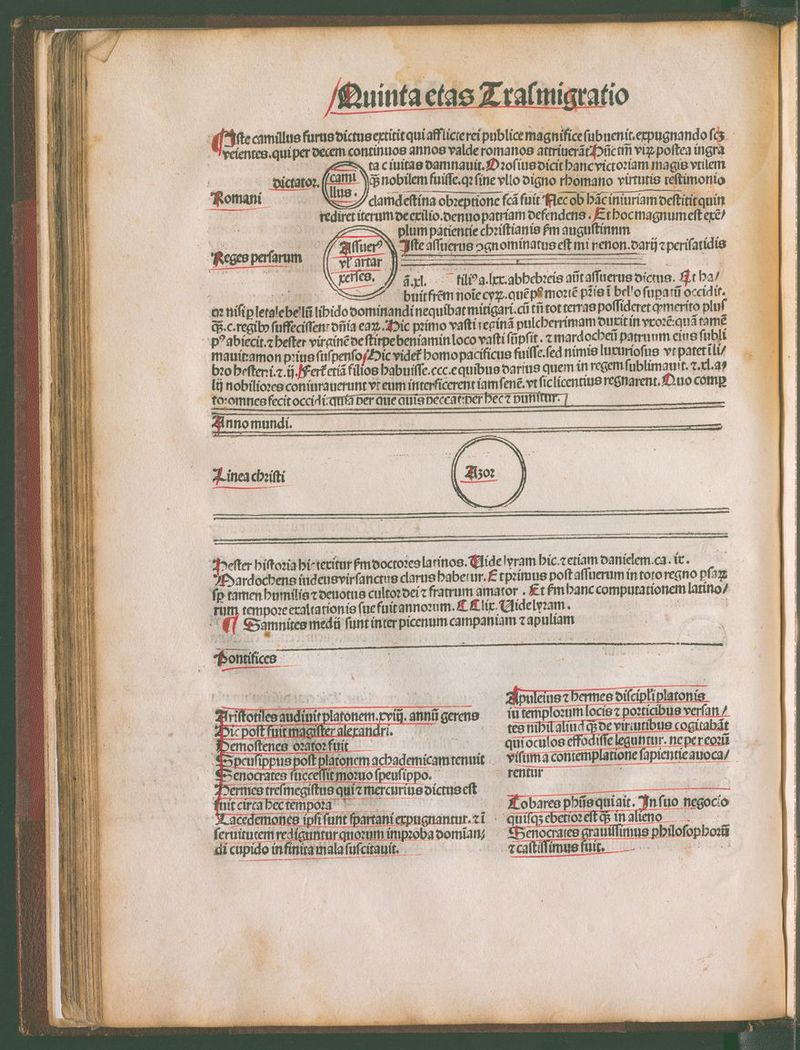 Quinta etas Trasmigratio
Iste camillus furus dictus extitit qui afflicte rei publice magnifice subuenit. expugnando scꝫ
veientes. qui per decem continuos annos valde romanos attriuerāt. Hūc tn̄ viꝝ postea ingra
ta ciuitas damnauit. Orosius dicit hanc victoriam magis vtilem
dictator. cami llus.
ꝙ̄ nobilem fuisse. qꝛ sine vllo digno rhomano virtutis testimonio
Romani
clamdestina obreptione fcā fuit Nec ob hāc iniuriam destitit quin
rediret iterum de exilio. denuo patriam defendens. Et hoc magnum est exē/
plum patientie christianis ẜm augustinum
Reges persarum
Assuerꝰ vl' artar xerses.
Iste assuerus ꝯgnominatus est mi renon. darij ⁊ perisatidis
ā. xl. filiꝰ a. lxx. ab hebreis aūt assuerus dictus. Et ha/
buit frēm noīe cyꝝ. quē pꝰ mortē pr̄is ī bel'o supatū occidit.
qꝛ nisi ꝑ letale be'lū libido dominandi nequibat mitigari. cū tn̄ tot terras possideret ꝙ merito plusꝙ̄
.c. regibꝰ suffecissent dn̄ia eaꝝ. Hic primo vasti reginā pulcherrimam duxit in vxorē: quā tamē
pꝰ abiecit. ⁊ hester virginē de stirpe beniamin loco vasti sūpsit. ⁊ mardocheū patruum eius subli
mauit: amon prius suspenso/ Hic videt̄ homo pacificus fuisse. sed nimis luxuriosus vt patet ī li/
bro hester: i. ⁊. ij. Fert̄ etiā filios habuisse. ccc. e quibus darius quem in regem sublimauit. ⁊. xl. a
lij nobiliores coniurauerunt vt eum interficerent iam senē. vt sic licentius regnarent. Quo comp
to: omnes fecit occidi: quia per que quis peccat: per hec ⁊ punitur.
Anno mundi.
Linea christi
Azor
Hester historia hic texitur ẜm doctores latinos. Vide lyram hic. ⁊ etiam danielem. ca. ix.
Mardocheus iudeus vir sanctus clarus habetur. Et primus post assuerum in toto regno ꝑsaꝝ
sꝑ tamen humilis ⁊ deuotus cultor dei ⁊ fratrum amator. Et ẜm hanc computationem latino/
rum tempore exaltationis sue fuit annorum. C Clix. Vide lyram.
Samnites medij sunt inter picenum campaniam ⁊ apuliam
Pontifices
Aristotiles audiuit platonem. xviij. annū gerens
Hic post fuit magister alexandri.
Demostenes orator fuit
Speusippus post platonem achademicam tenuit
Senocrates successit mortuo speusippo.
Hermes tresmegistus qui ⁊ mercurius dictus est
fuit circa hec tempora
Lacedemones ipsi sunt spartani expugnantur. ⁊ ī
seruitutem rediguntur quorum improba domīan/
di cupido infinita mala suscitauit.
Apuleius ⁊ hermes discipl'i platonis
in templorum locis ⁊ porticibus versan/
tes nihil aliud ꝙ̄ de virtutibus cogitabāt
qui oculos effodisse leguntur. ne per eorū
visum a contemplatione sapientie auoca/
rentur
Cobares phūs qui ait. In suo negocio
quisqꝫ ebetior est ꝙ̄ in alieno
Senocrates grauissimus philosophorū
⁊ castissimus fuit.